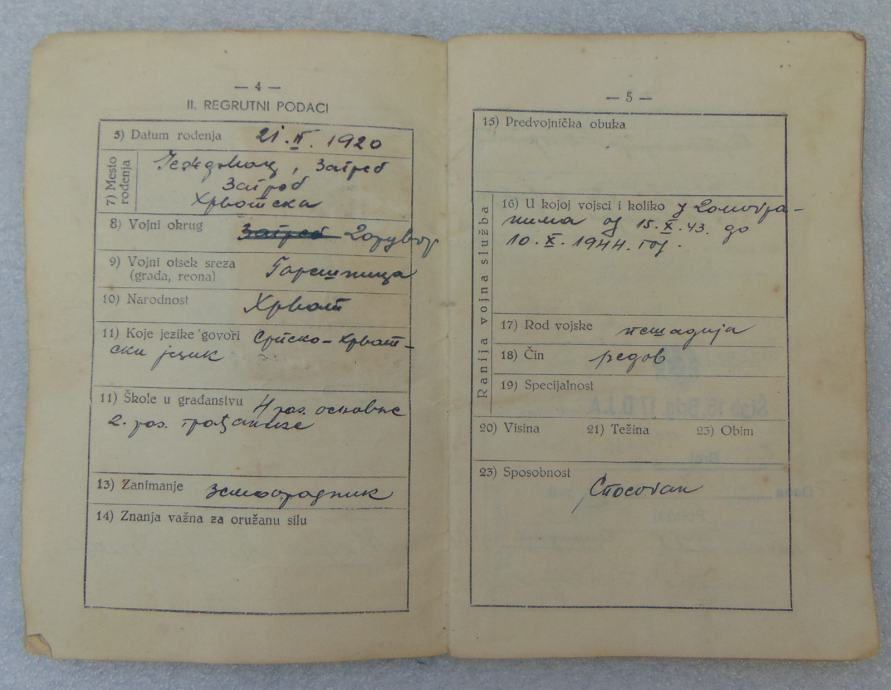 — 4 —
II. REGRUTNI PODACI
5) Datum rođenja 21. II. 1920
7) Mesto rođenja
, Загреб
Загреб
Хрватска
8) Vojni okrug Загреб
9) Vojni otsek sreza
(grada, reona) Гарешница
10) Narodnost Хрват
11) Koje jezike govori Српско-хрват-
ски језик
11) Škole u građanstvu 4 раз. основне
2. раз. грађанске
13) Zanimanje земљорадник
14) Znanja važna za oružanu silu
— 5 —
15) Predvojnička obuka
Ranija vojna služba
16) U kojoj vojsci i koliko У домобра-
нима од 15. X. 43. до
10. X. 1944. год.
17) Rod vojske пешадија
18) Čin редов
19) Specijalnost
20) Visina 21) Težina 23) Obim
23) Sposobnost Способан